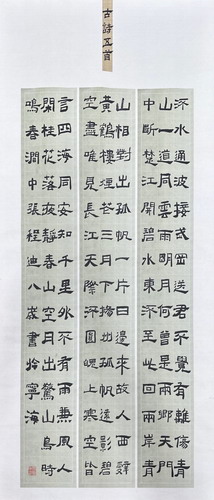 古詩五首
沅水通波接武岡送君不覺有離傷青
山一道同雲雨明月何曾是兩鄉天門
中斷楚江開碧水東流至此回兩岸青
山相對出孤帆一片日邊來故人西辭
黃鶴樓煙花三月下揚州孤帆遠影碧
空盡唯見長江天際流圓魄上寒空皆
言四海同安知千里外不有雨兼風人
閑桂花落夜靜春山空月出驚山鳥時
鳴春澗中張程迪八歲書於寧海